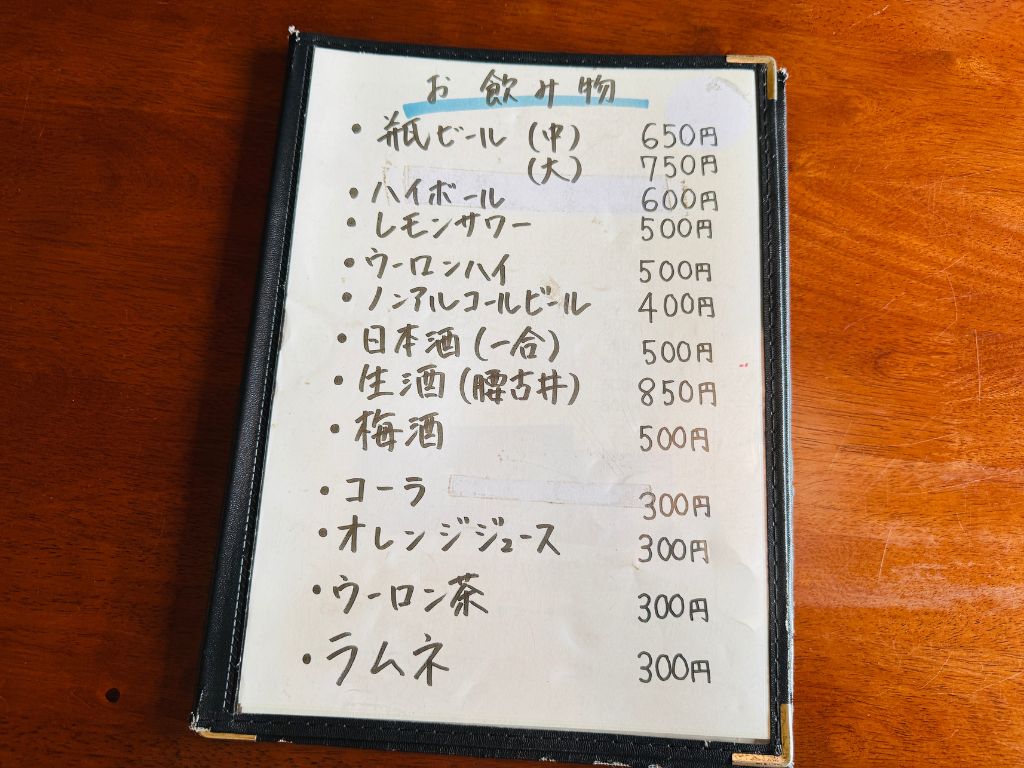 お飲み物
・瓶ビール (中) 650円
(大) 750円
・ハイボール 600円
・レモンサワー 500円
・ウーロンハイ 500円
・ノンアルコールビール 400円
・日本酒 (一合) 500円
・生酒 (腰古井) 850円
・梅酒 500円
・コーラ 300円
・オレンジジュース 300円
・ウーロン茶 300円
・ラムネ 300円